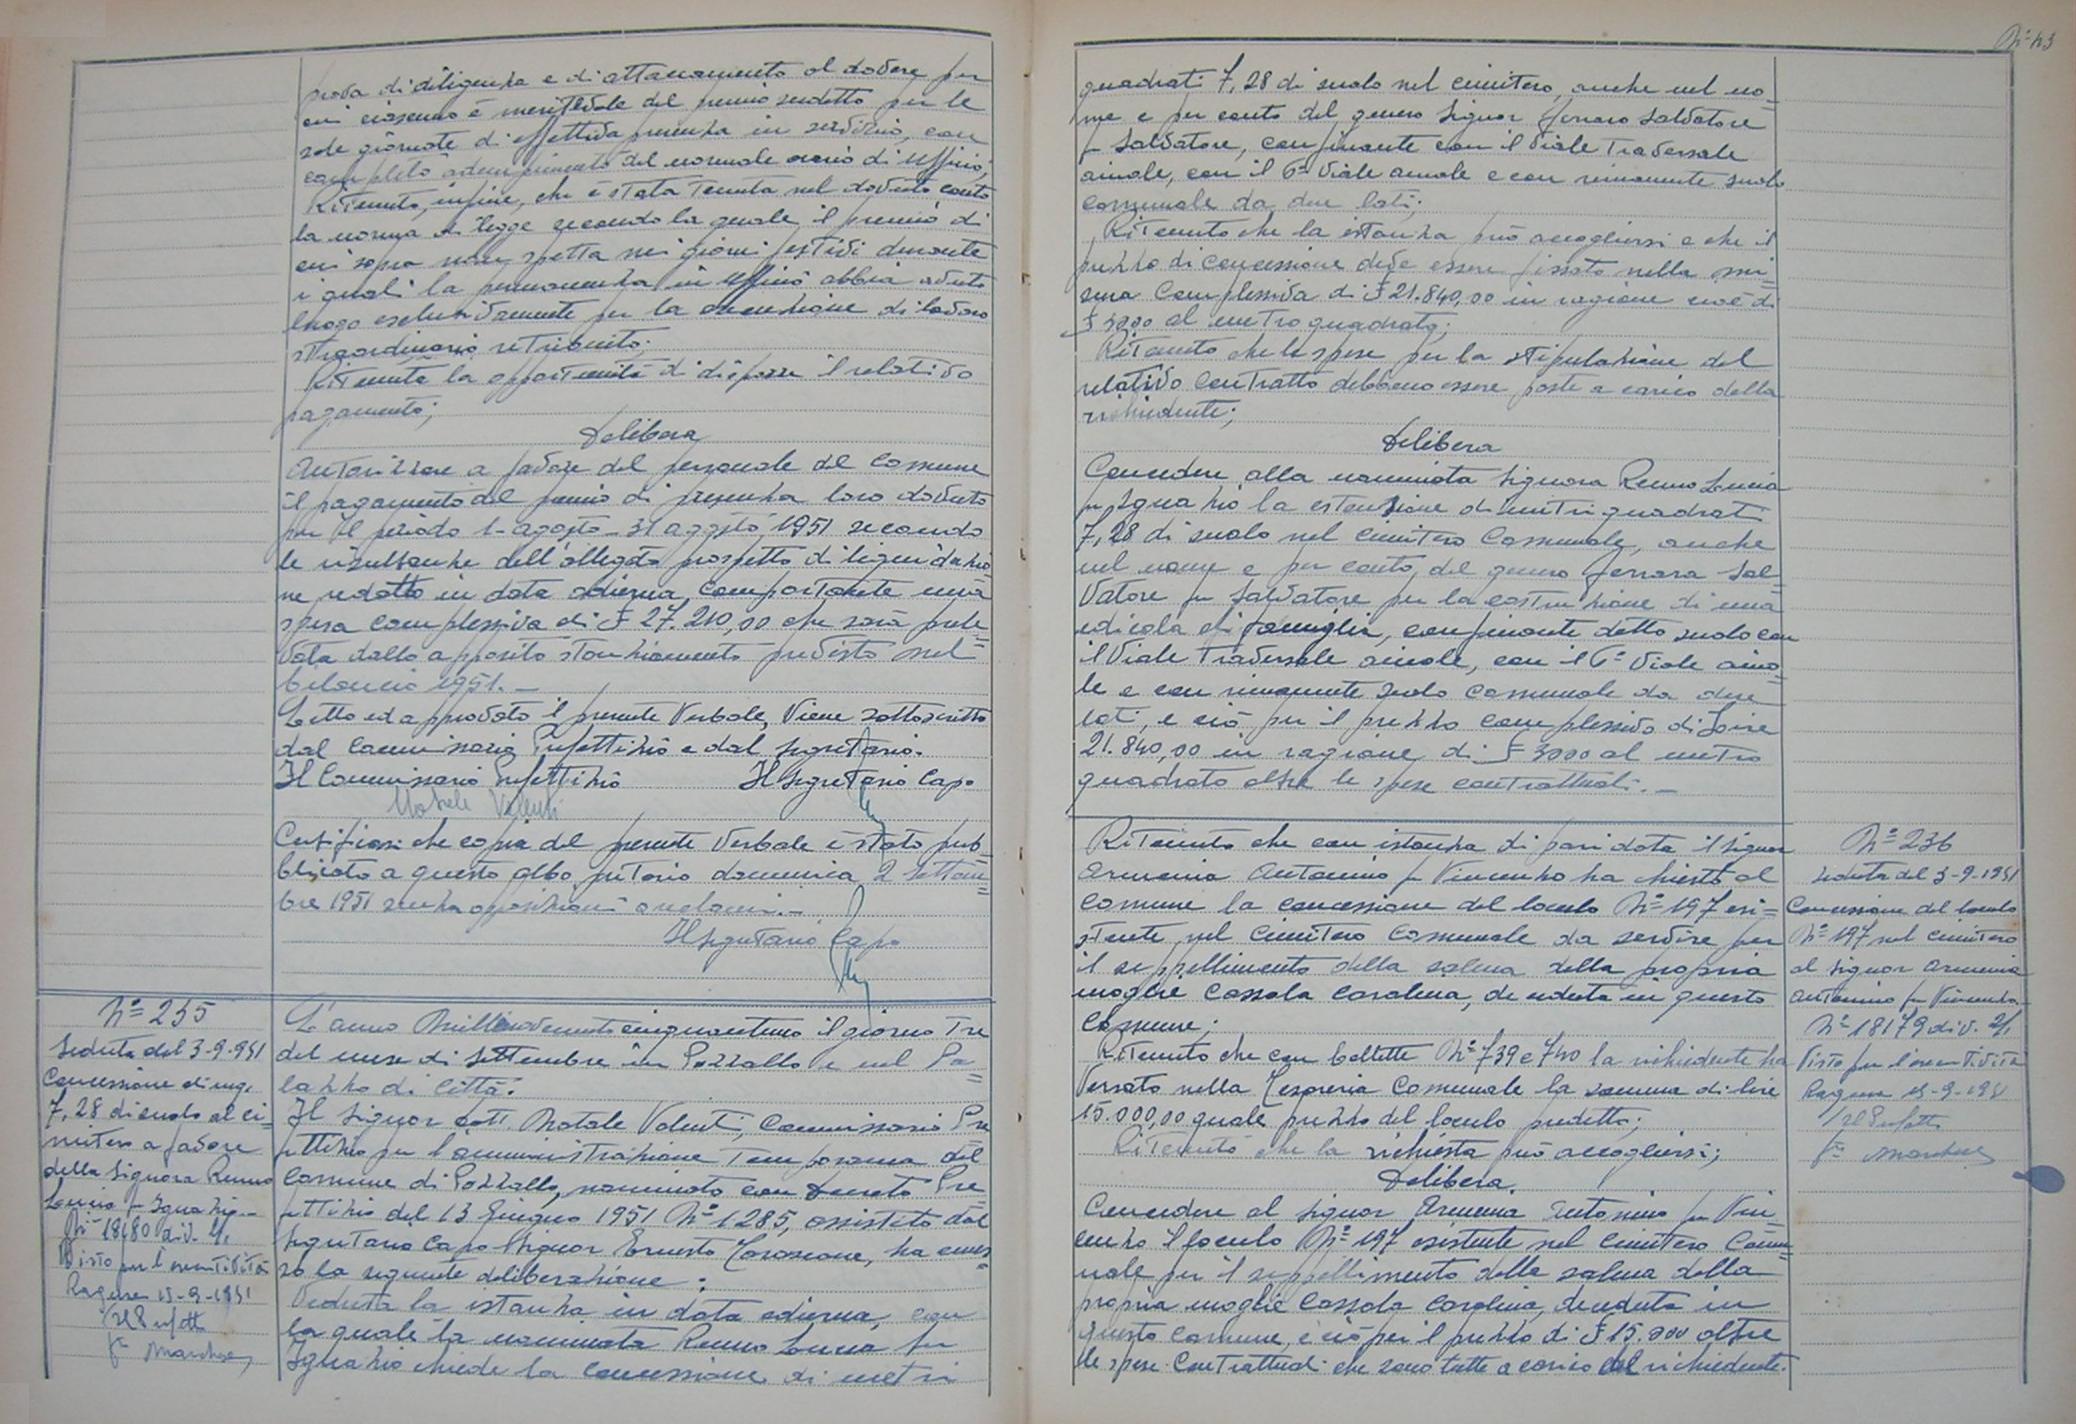 prova di diligenza e di attaccamento al dovere per
cui ciascuno è meritevole del premio suddetto per le
sole giornate di effettiva presenza in servizio, con
completo adempimento del normale orario di ufficio;
Ritenuto, infine, che è stata tenuta nel dovuto conto
la norma di legge secondo la quale il premio di
cui sopra non spetta nei giorni festivi durante
i quali la permanenza in ufficio abbia avuto
luogo esclusivamente per la esecuzione di lavoro
straordinario retribuito;
Ritenuta la opportunità di disporre il relativo
pagamento;
Delibera
Autorizzare a favore del personale del Comune
il pagamento del premio di presenza loro dovuto
per il periodo 1- agosto - 31 agosto 1951 secondo
le risultanze dell'allegato prospetto di liquidazio=
ne redatto in data odierna, comportante una
spesa complessiva di £ 27.210,00 che sarà prele=
vata dallo apposito stanziamento previsto nel
bilancio 1951. -
Letto ed approvato il presente Verbale, viene sottoscritto
dal Commissario Prefettizio e dal Segretario.
Il Commissario Prefettizio Il Segretario Capo
Natale Valenti
Certificasi che copia del presente Verbale è stato pub=
blicato a questo albo pretorio domenica 2 settem=
bre 1951 senza opposizioni o reclami. -
Il Segretario Capo
N° 235
Seduta del 3-9-951
Concessione di mq.
7,28 di suolo al ci=
mitero a favore
della Signora Renno
Lucia fu Ignazio -
N° 18180 div. 2/1
Visto per l'esecutività
Ragusa 15-9-1951
Il Prefetto
L'anno Millenovecentocinquantuno il giorno Tre
del mese di Settembre in Pozzallo e nel Pa=
lazzo di Città.
Il Signor dott. Natale Valenti, Commissario Pre
fettizio per l'amministrazione Temporanea del
Comune di Pozzallo, nominato con Decreto Pre=
fettizio del 13 Giugno 1951 N° 1285, assistito dal
Segretario Capo Signor Ernesto, ha emes=
so la seguente deliberazione:
Veduta la istanza in data odierna, con
la quale la nominata Renno Lucia fu
Ignazio chiede la concessione di metri
N° 43
quadrati 7,28 di suolo nel cimitero, anche nel no=
me e per conto del genero Signor Ferraro Salvatore
fu Salvatore, confinante con il viale Traversale
ainole, con il 6° Viale ainole e con rimanente suolo
comunale da due lati;
Ritenuto che la istanza può accogliersi e che il
prezzo di concessione deve essere fissato nella mi=
sura complessiva di £ 21.840,00 in ragione cioè di
£ 3000 al metro quadrato;
Ritenuto che le spese per la stipulazione del
relativo contratto debbono essere poste a carico della
richiedente;
Delibera
Concedere alla nominata Signora Renno Lucia
fu Ignazio la estensione di metri quadrati
7,28 di suolo nel cimitero Comunale, anche
nel nome e per conto del genero Ferrara Sal=
vatore fu Salvatore per la costruzione di una
edicola di famiglia, confinante detto suolo con
il Viale Traversale ainole, con il 6° Viale aino=
le e con rimanente suolo comunale da due
lati, e ciò per il prezzo complessivo di Lire
21.840,00 in ragione di £ 3000 al metro
quadrato oltre le spese contrattuali. -
Ritenuto che con istanza di pari data il Signor
Armenia Antonino fu Vincenzo ha chiesto al
Comune la concessione del loculo N° 197 esi=
stente nel cimitero comunale da servire per
il seppellimento della salma della propria
moglie Cassola Carolina, deceduta in questo
Comune;
Ritenuto che con bollette N° 739 e 740 la richiedente ha
versato nella Tesoreria Comunale la somma di lire
15.000,00 quale prezzo del loculo predetto;
Ritenuto che la richiesta può accogliersi;
Delibera.
Concedere al Signor Armenia Antonino fu Vin=
cenzo il loculo N° 197 esistente nel cimitero Comu=
nale per il seppellimento della salma della
propria moglie Cassola Carolina, deceduta in
questo Comune, e ciò per il prezzo di £ 15.000 oltre
le spese contrattuali che sono tutte a carico del richiedente.
N° 236
Seduta del 3-9-1951
Concessione del loculo
N° 197 nel cimitero
al Signor Armenia
Antonino fu Vincenzo
N° 18179 div. 2/1
Visto per l'esecutività
Ragusa 15-9-1951
Il Prefetto